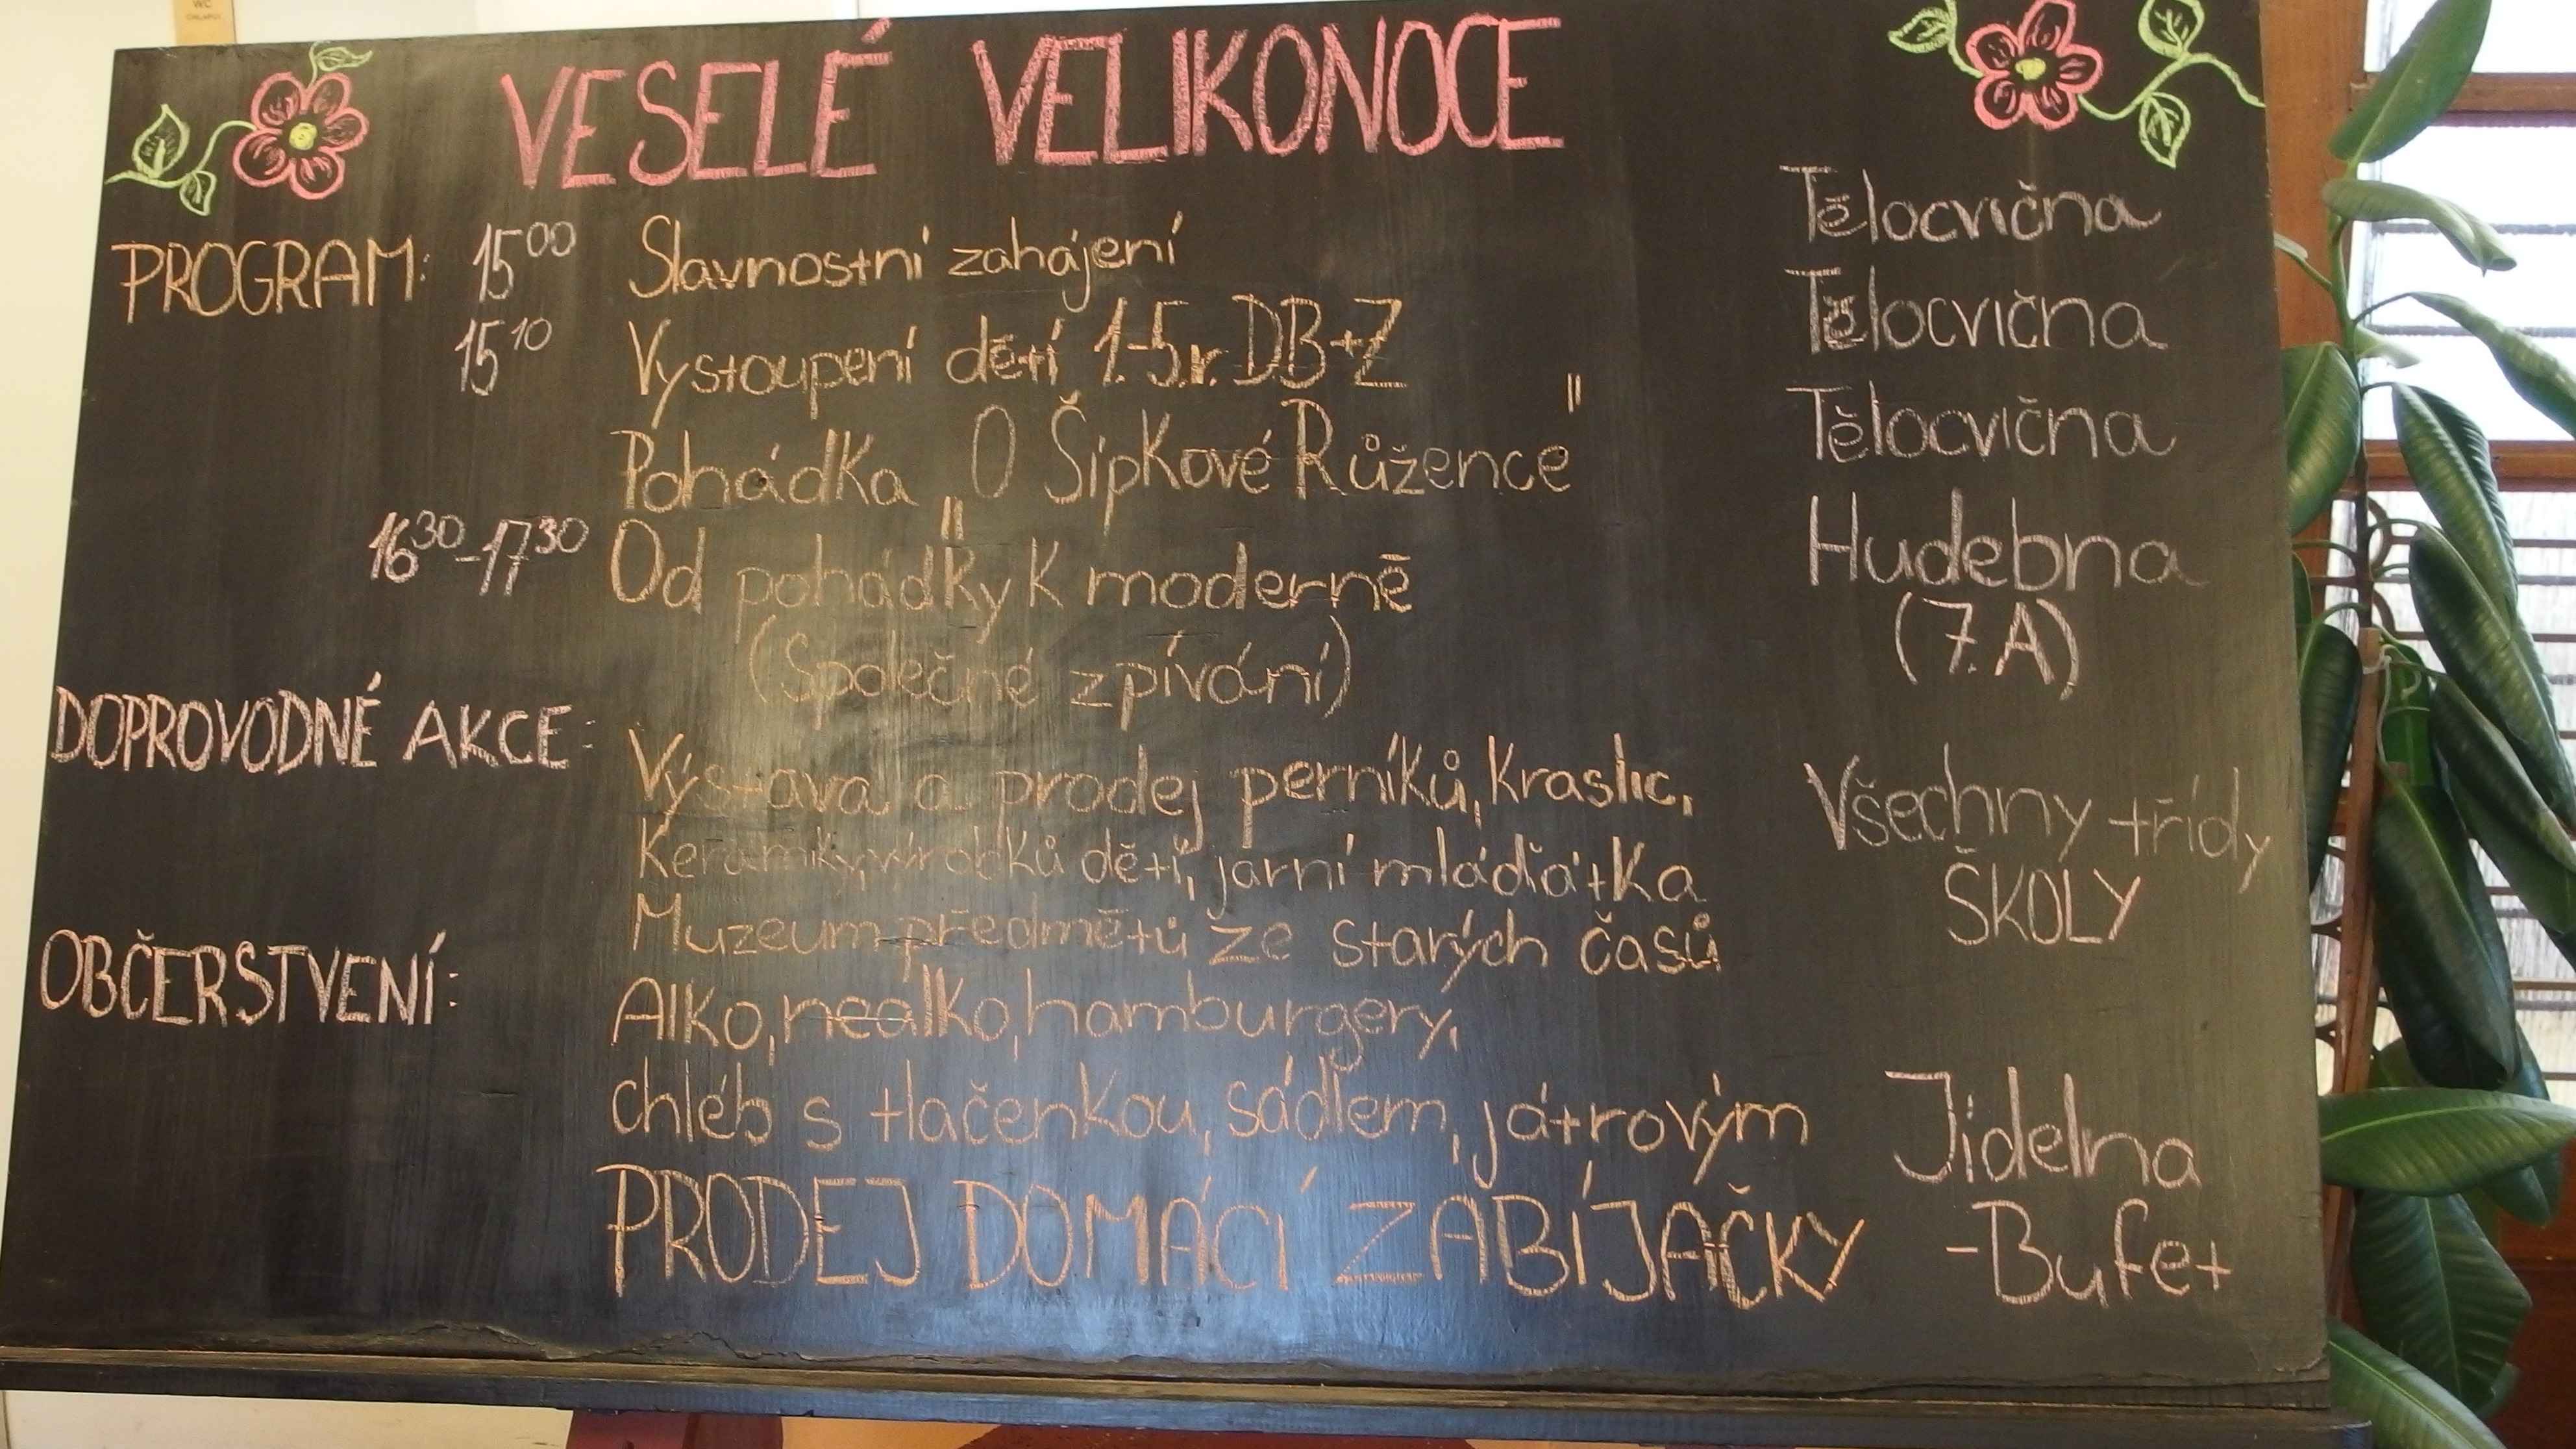 VESELÉ VELIKONOCE
PROGRAM: 15⁰⁰ Slavnostní zahájení Tělocvična
15¹⁰ Vystoupení dětí 1.-5.r. DB+Z Tělocvična
Pohádka "O Šípkové Růžence" Tělocvična
16³⁰-17³⁰ Od pohádky k moderně Hudebna
(Společné zpívání) (7.A)
DOPROVODNÉ AKCE: Výstava a prodej perníků, kraslic, Všechny třídy
keramiky, výrobků dětí, jarní mláďátka ŠKOLY
Muzeum předmětů ze starých časů
OBČERSTVENÍ: Alko, nealko, hamburgery,
chléb s tlačenkou, sádlem, játrovým Jídelna
PRODEJ DOMÁCÍ ZABÍJAČKY -Bufet